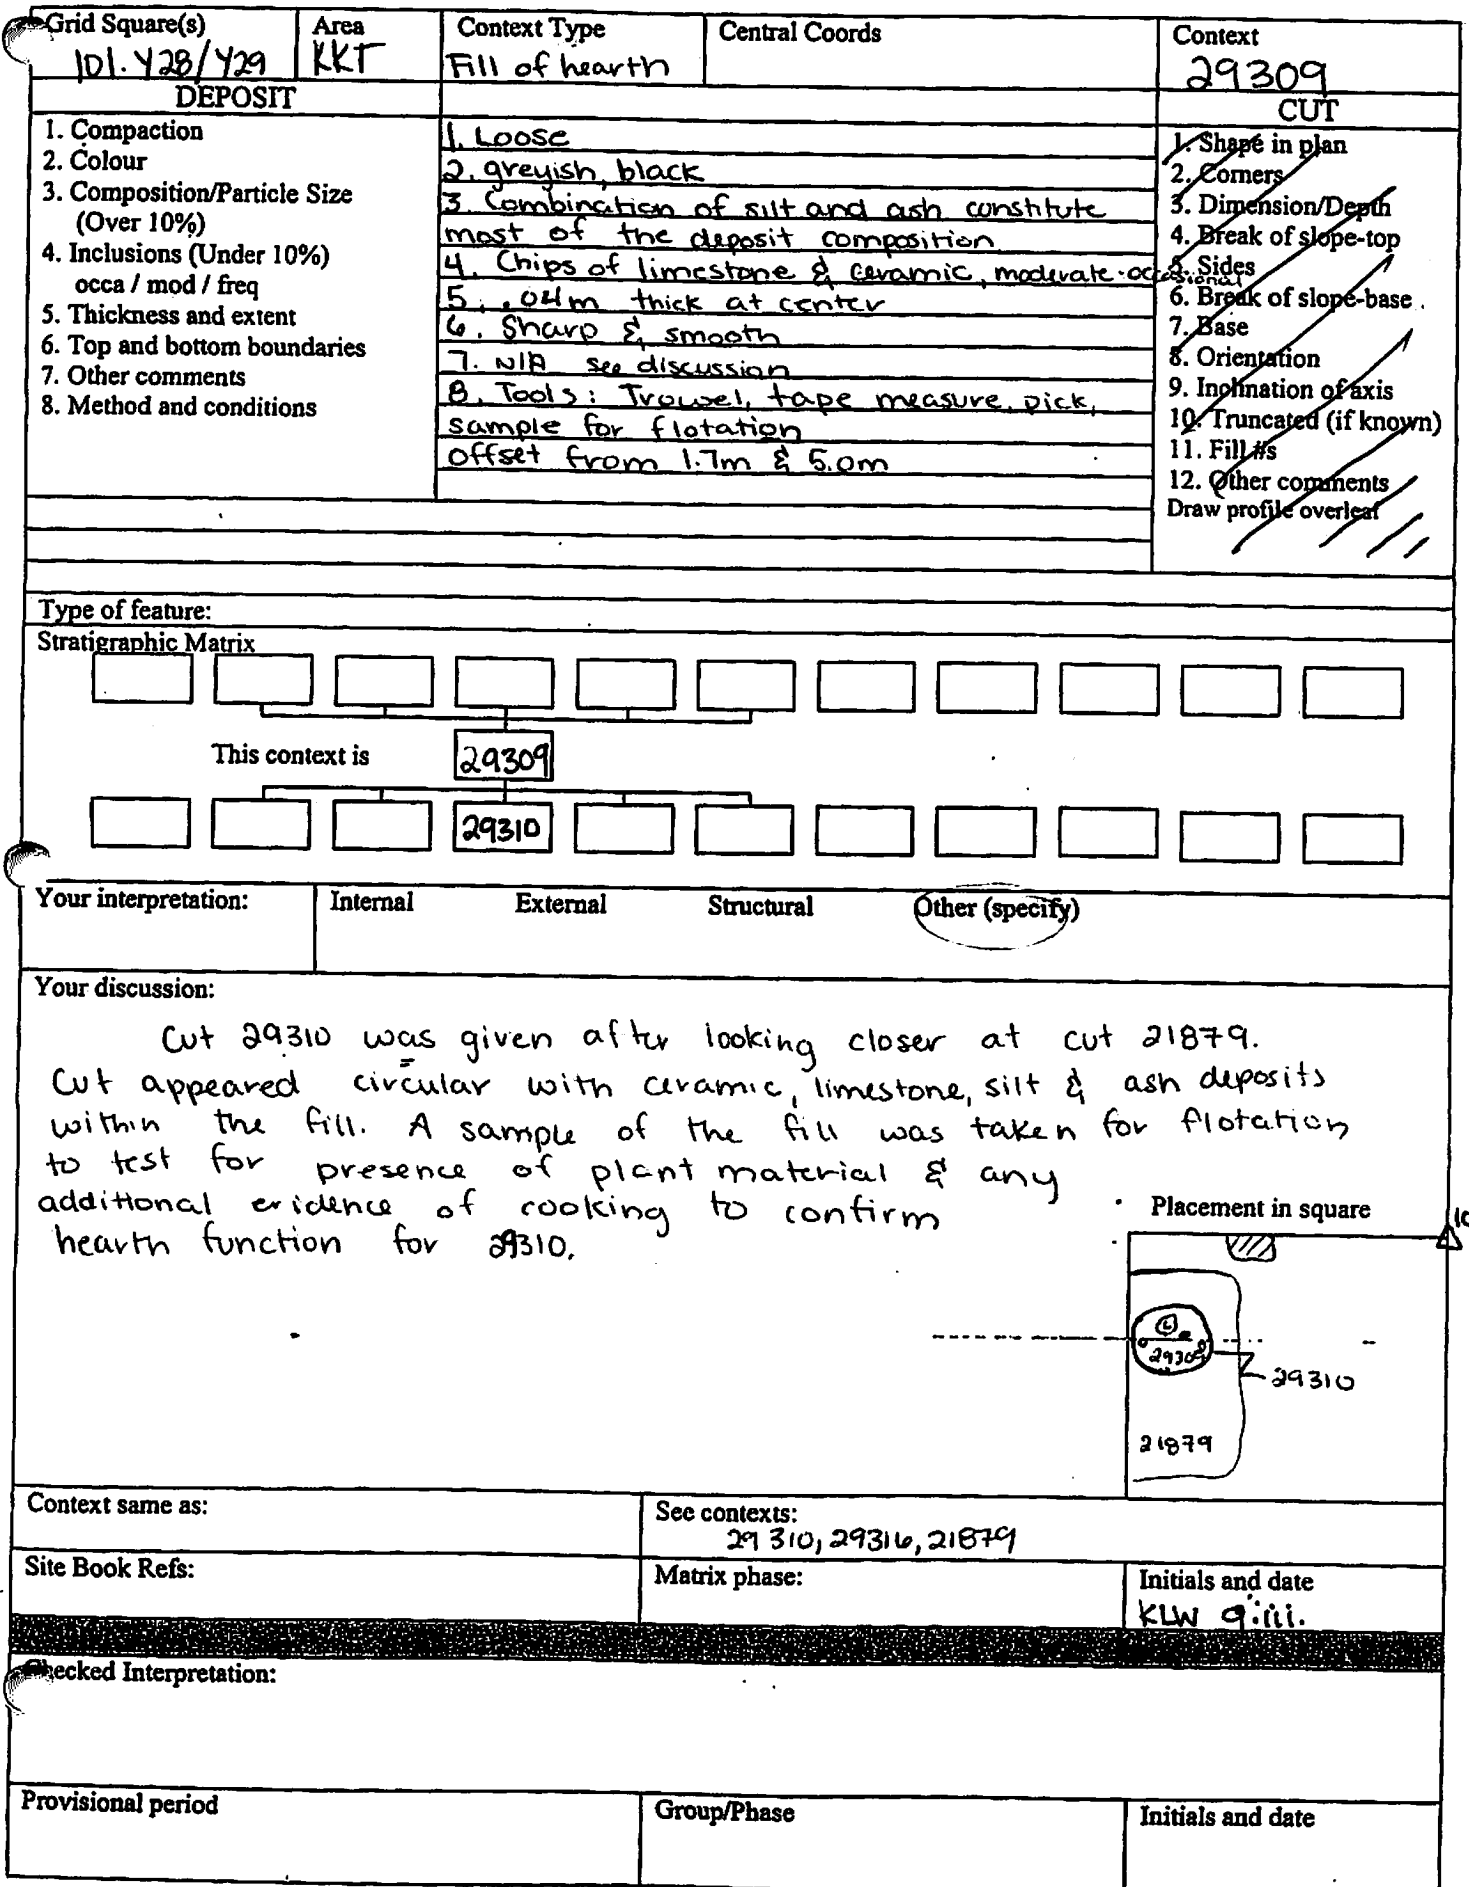 Grid Square(s) Area Context Type Central Coords Context
101.Y28/Y29 KKT Fill of hearth 29309
DEPOSIT CUT
1. Compaction
2. Colour
3. Composition/Particle Size
(Over 10%)
4. Inclusions (Under 10%)
occa / mod / freq
5. Thickness and extent
6. Top and bottom boundaries
7. Other comments
8. Method and conditions
1. Loose
2. greyish, black
3. Combination of silt and ash constitute
most of the deposit composition
4. Chips of limestone & ceramic, moderate-occasional
5. .04m thick at center
6. Sharp & smooth
7. N/A see discussion
8. Tools: Trowel, tape measure, pick,
sample for flotation
offset from 1.7m & 5.0m
1. Shape in plan
2. Corners
3. Dimension/Depth
4. Break of slope-top
5. Sides
6. Break of slope-base
7. Base
8. Orientation
9. Inclination of axis
10. Truncated (if known)
11. Fill #s
12. Other comments
Draw profile overleaf
Type of feature:
Stratigraphic Matrix
This context is 29309
29310
Your interpretation: Internal External Structural Other (specify)
Your discussion:
Cut 29310 was given after looking closer at cut 21879.
Cut appeared circular with ceramic, limestone, silt & ash deposits
within the fill. A sample of the fill was taken for flotation
to test for presence of plant material & any
additional evidence of cooking to confirm
hearth function for 29310.
Placement in square
10
L
29309
29310
21879
Context same as: See contexts:
29310, 29316, 21879
Site Book Refs: Matrix phase: Initials and date
KLW 9.iii.
Checked Interpretation:
Provisional period Group/Phase Initials and date